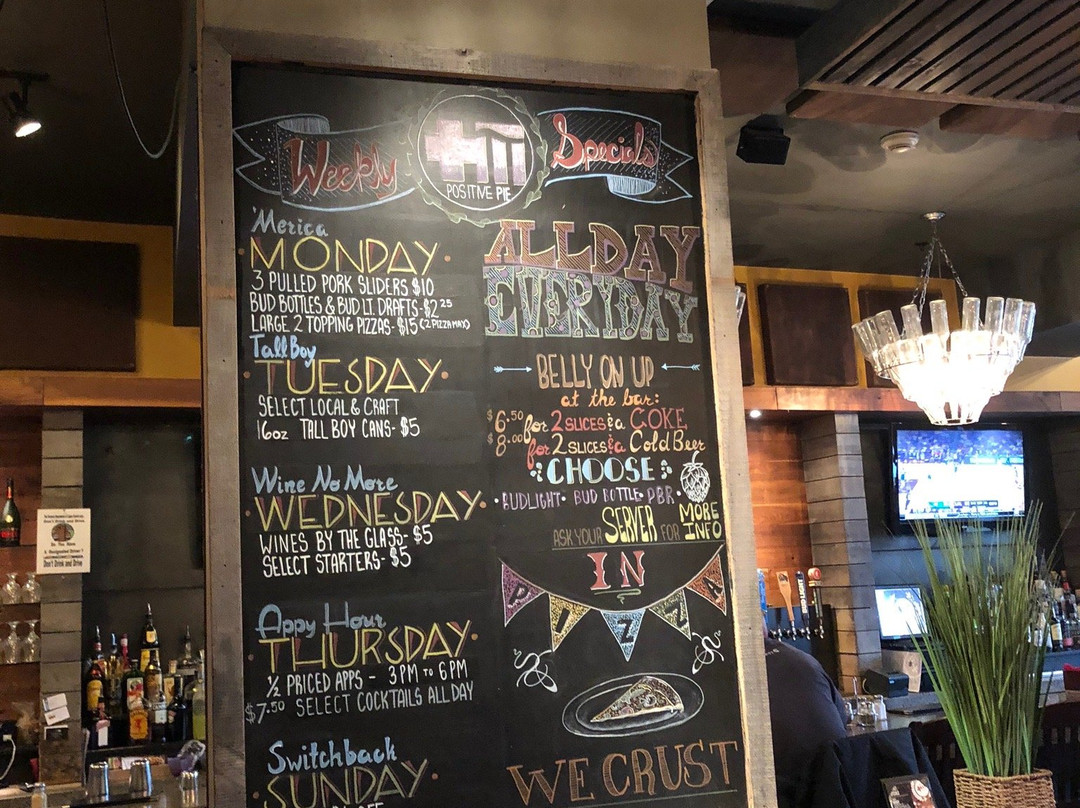 Weekly
POSITIVE PIE
Specials
'Merica
MONDAY
3 PULLED PORK SLIDERS $10
BUD BOTTLES & BUD LT. DRAFTS - $2 25
LARGE 2 TOPPING PIZZAS - $15 (2 PIZZA MAX)
Tall Boy
TUESDAY
SELECT LOCAL & CRAFT
16oz TALL BOY CANS - $5
Wine No More
WEDNESDAY
WINES BY THE GLASS - $5
SELECT STARTERS - $5
Appy Hour
THURSDAY
½ PRICED APPS - 3PM TO 6PM
$7.50 SELECT COCKTAILS ALL DAY
Switchback
SUNDAY
ALL DAY
EVERYDAY
BELLY ON UP
at the bar:
$6.50 for 2 SLICES & a COKE
$8.00 for 2 SLICES & a Cold Beer
CHOOSE:
• BUDLIGHT • BUD BOTTLE • PBR •
ASK YOUR SERVER FOR MORE INFO
IN
PIZZA
WE CRUST
Don't Drink and Drive